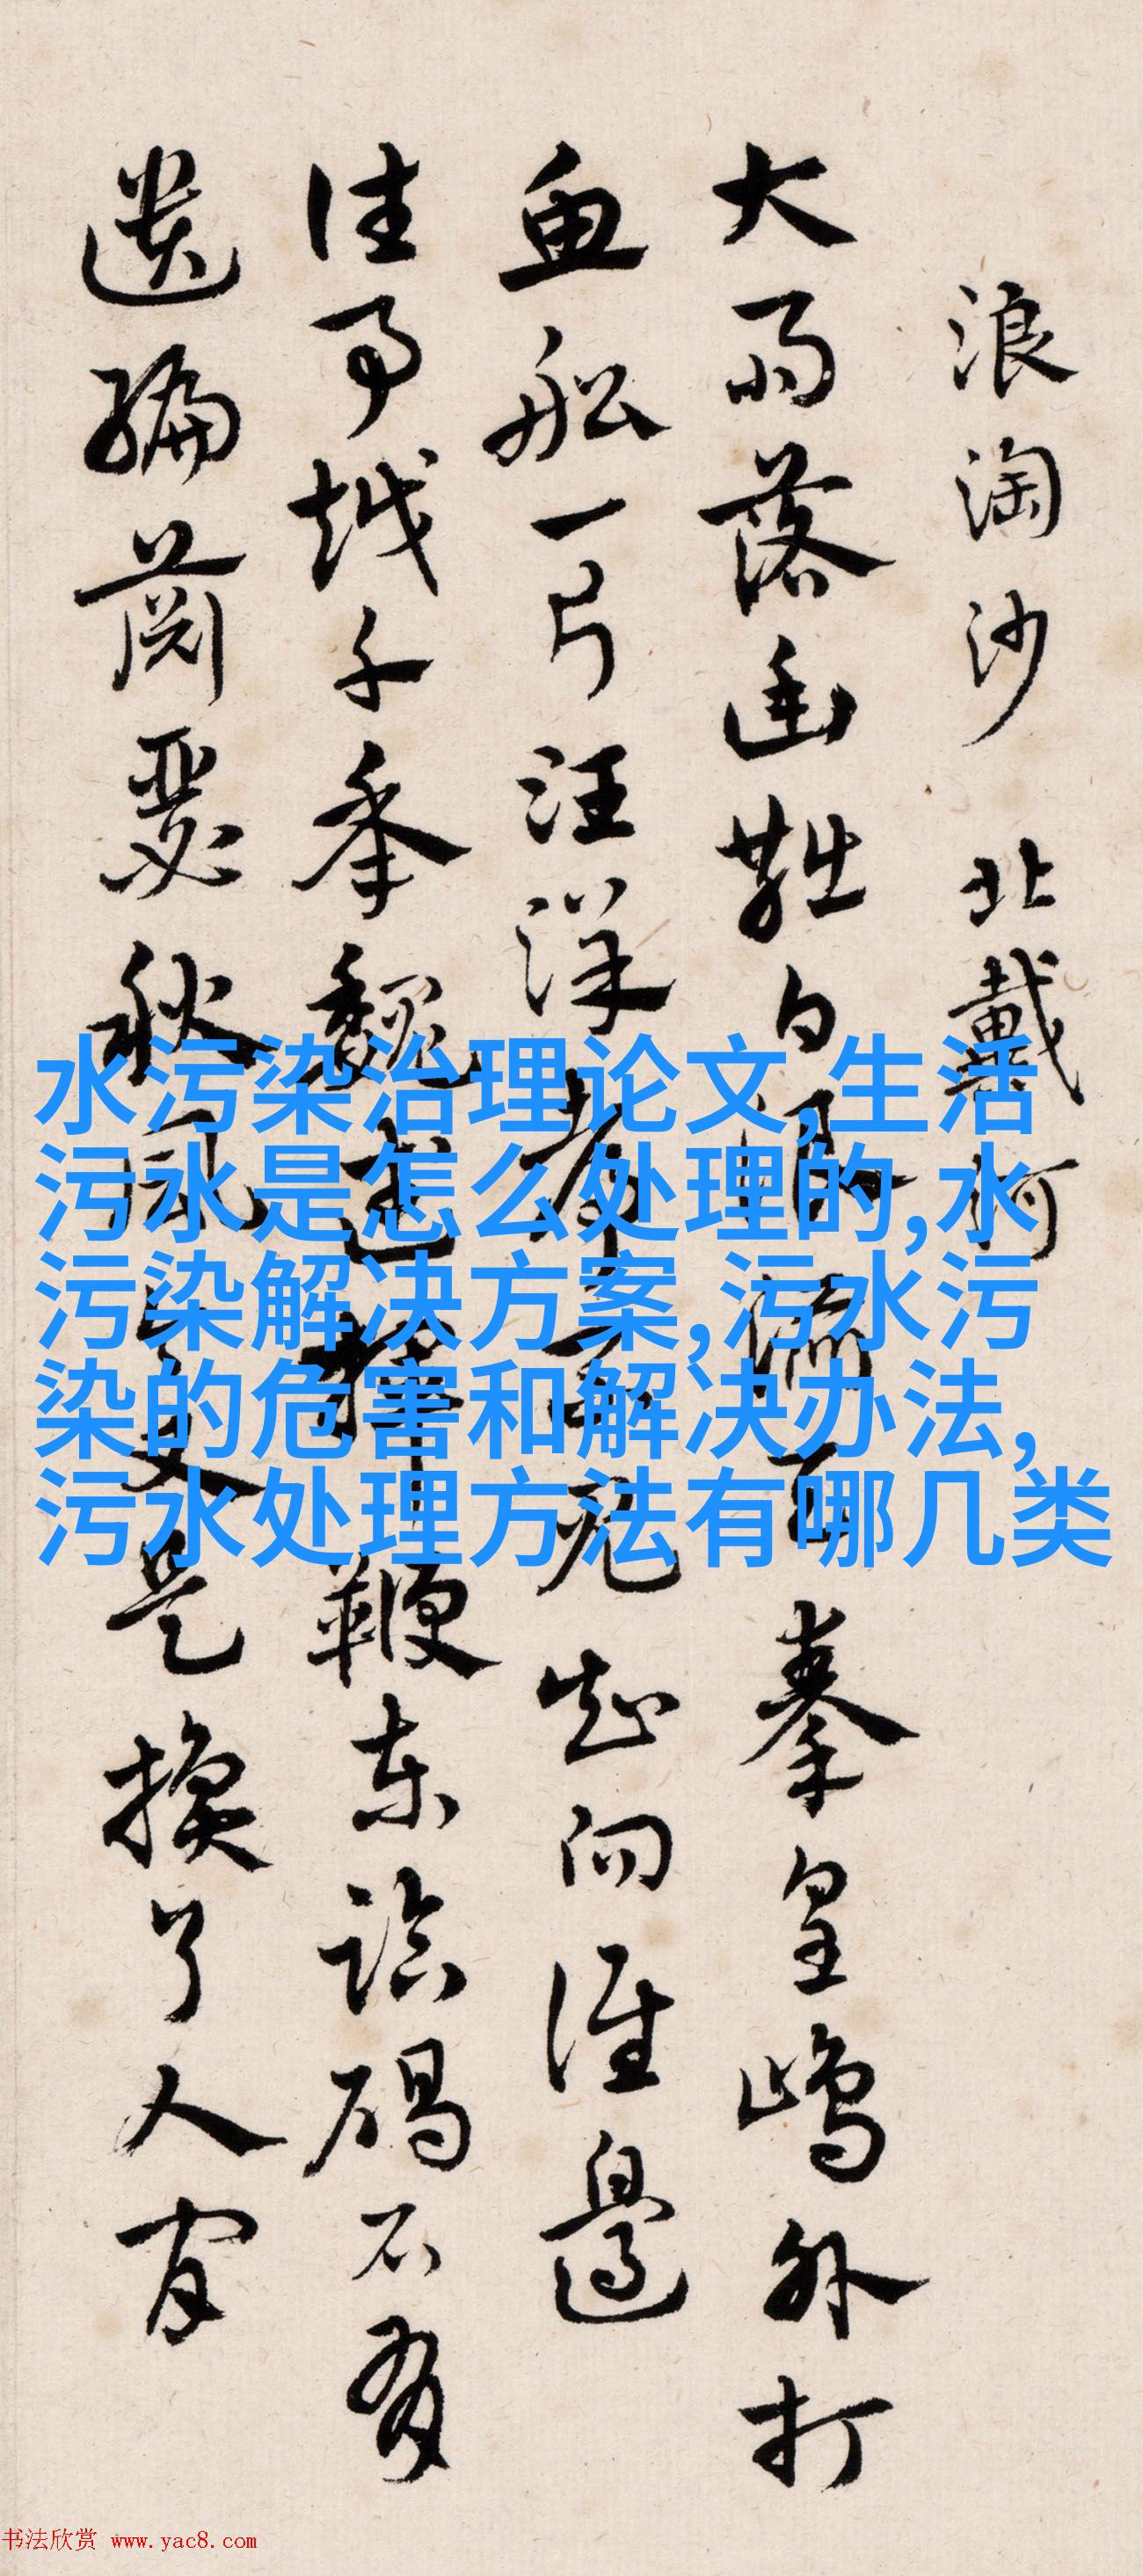 浪淘沙 北戴河
大雨落幽燕白浪滔天秦皇島外打
魚船一片汪洋都不見知向誰邊
往事越千年魏武揮鞭東臨碣石有
遺編蕭瑟秋風今又是換了人間
水污染治理论文,生活
污水是怎么处理的,水
污染解决方案,污水污
染的危害和解决办法,
污水处理方法有哪几类
书法欣赏 www.yac8.com